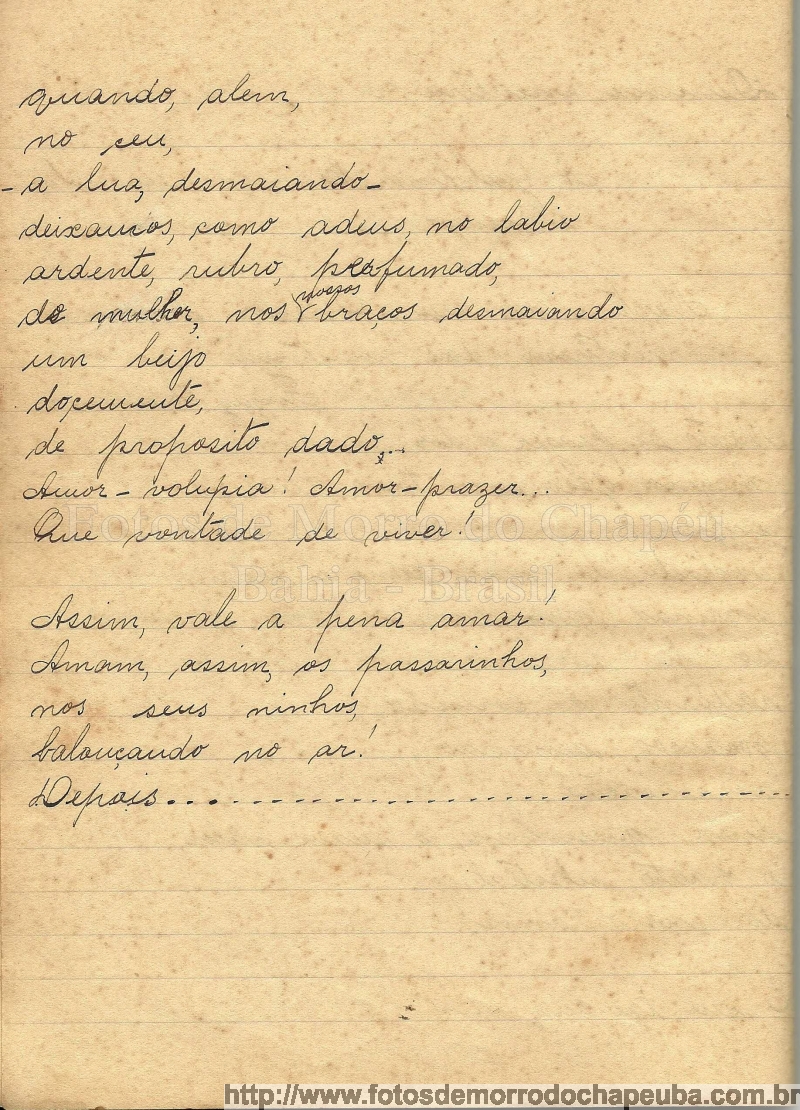 quando, alem,
no ceu,
- a lua, desmaiando -
deixamos, como adeus, no labio
ardente, rubro, perfumado,
de mulher, nos nossos braços desmaiando
um beijo
docemente,
de proposito dado...
Amor - volupia! Amor - prazer...
Que vontade de viver!
Fotos de Morro do Chapéu
Bahia - Brasil
Assim, vale a pena amar!
Amam, assim, os passarinhos,
nos seus ninhos,
balouçando no ar!
Depois..............................
http://www.fotosdemorrodochapeuba.com.br